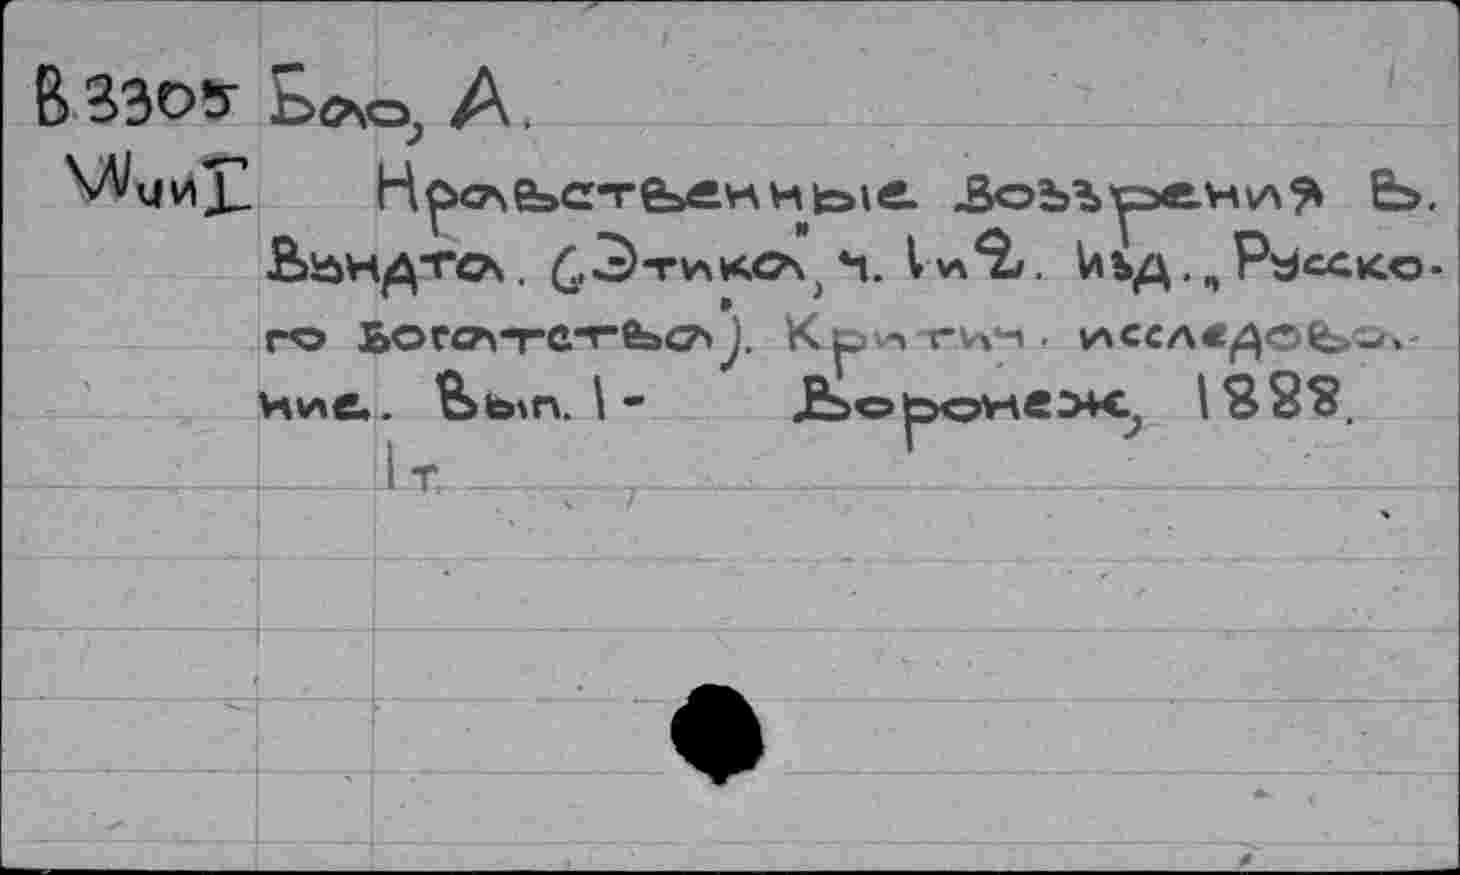 В3305 Бело, А.
Нравственные воззрения В.
Вундта. ("Этика", ч. 1 и 2. Изд. „Русско-
го Богатства"). Критич. исследова-
ние. Вып. 1- Воронеж, 1888.
1 т.